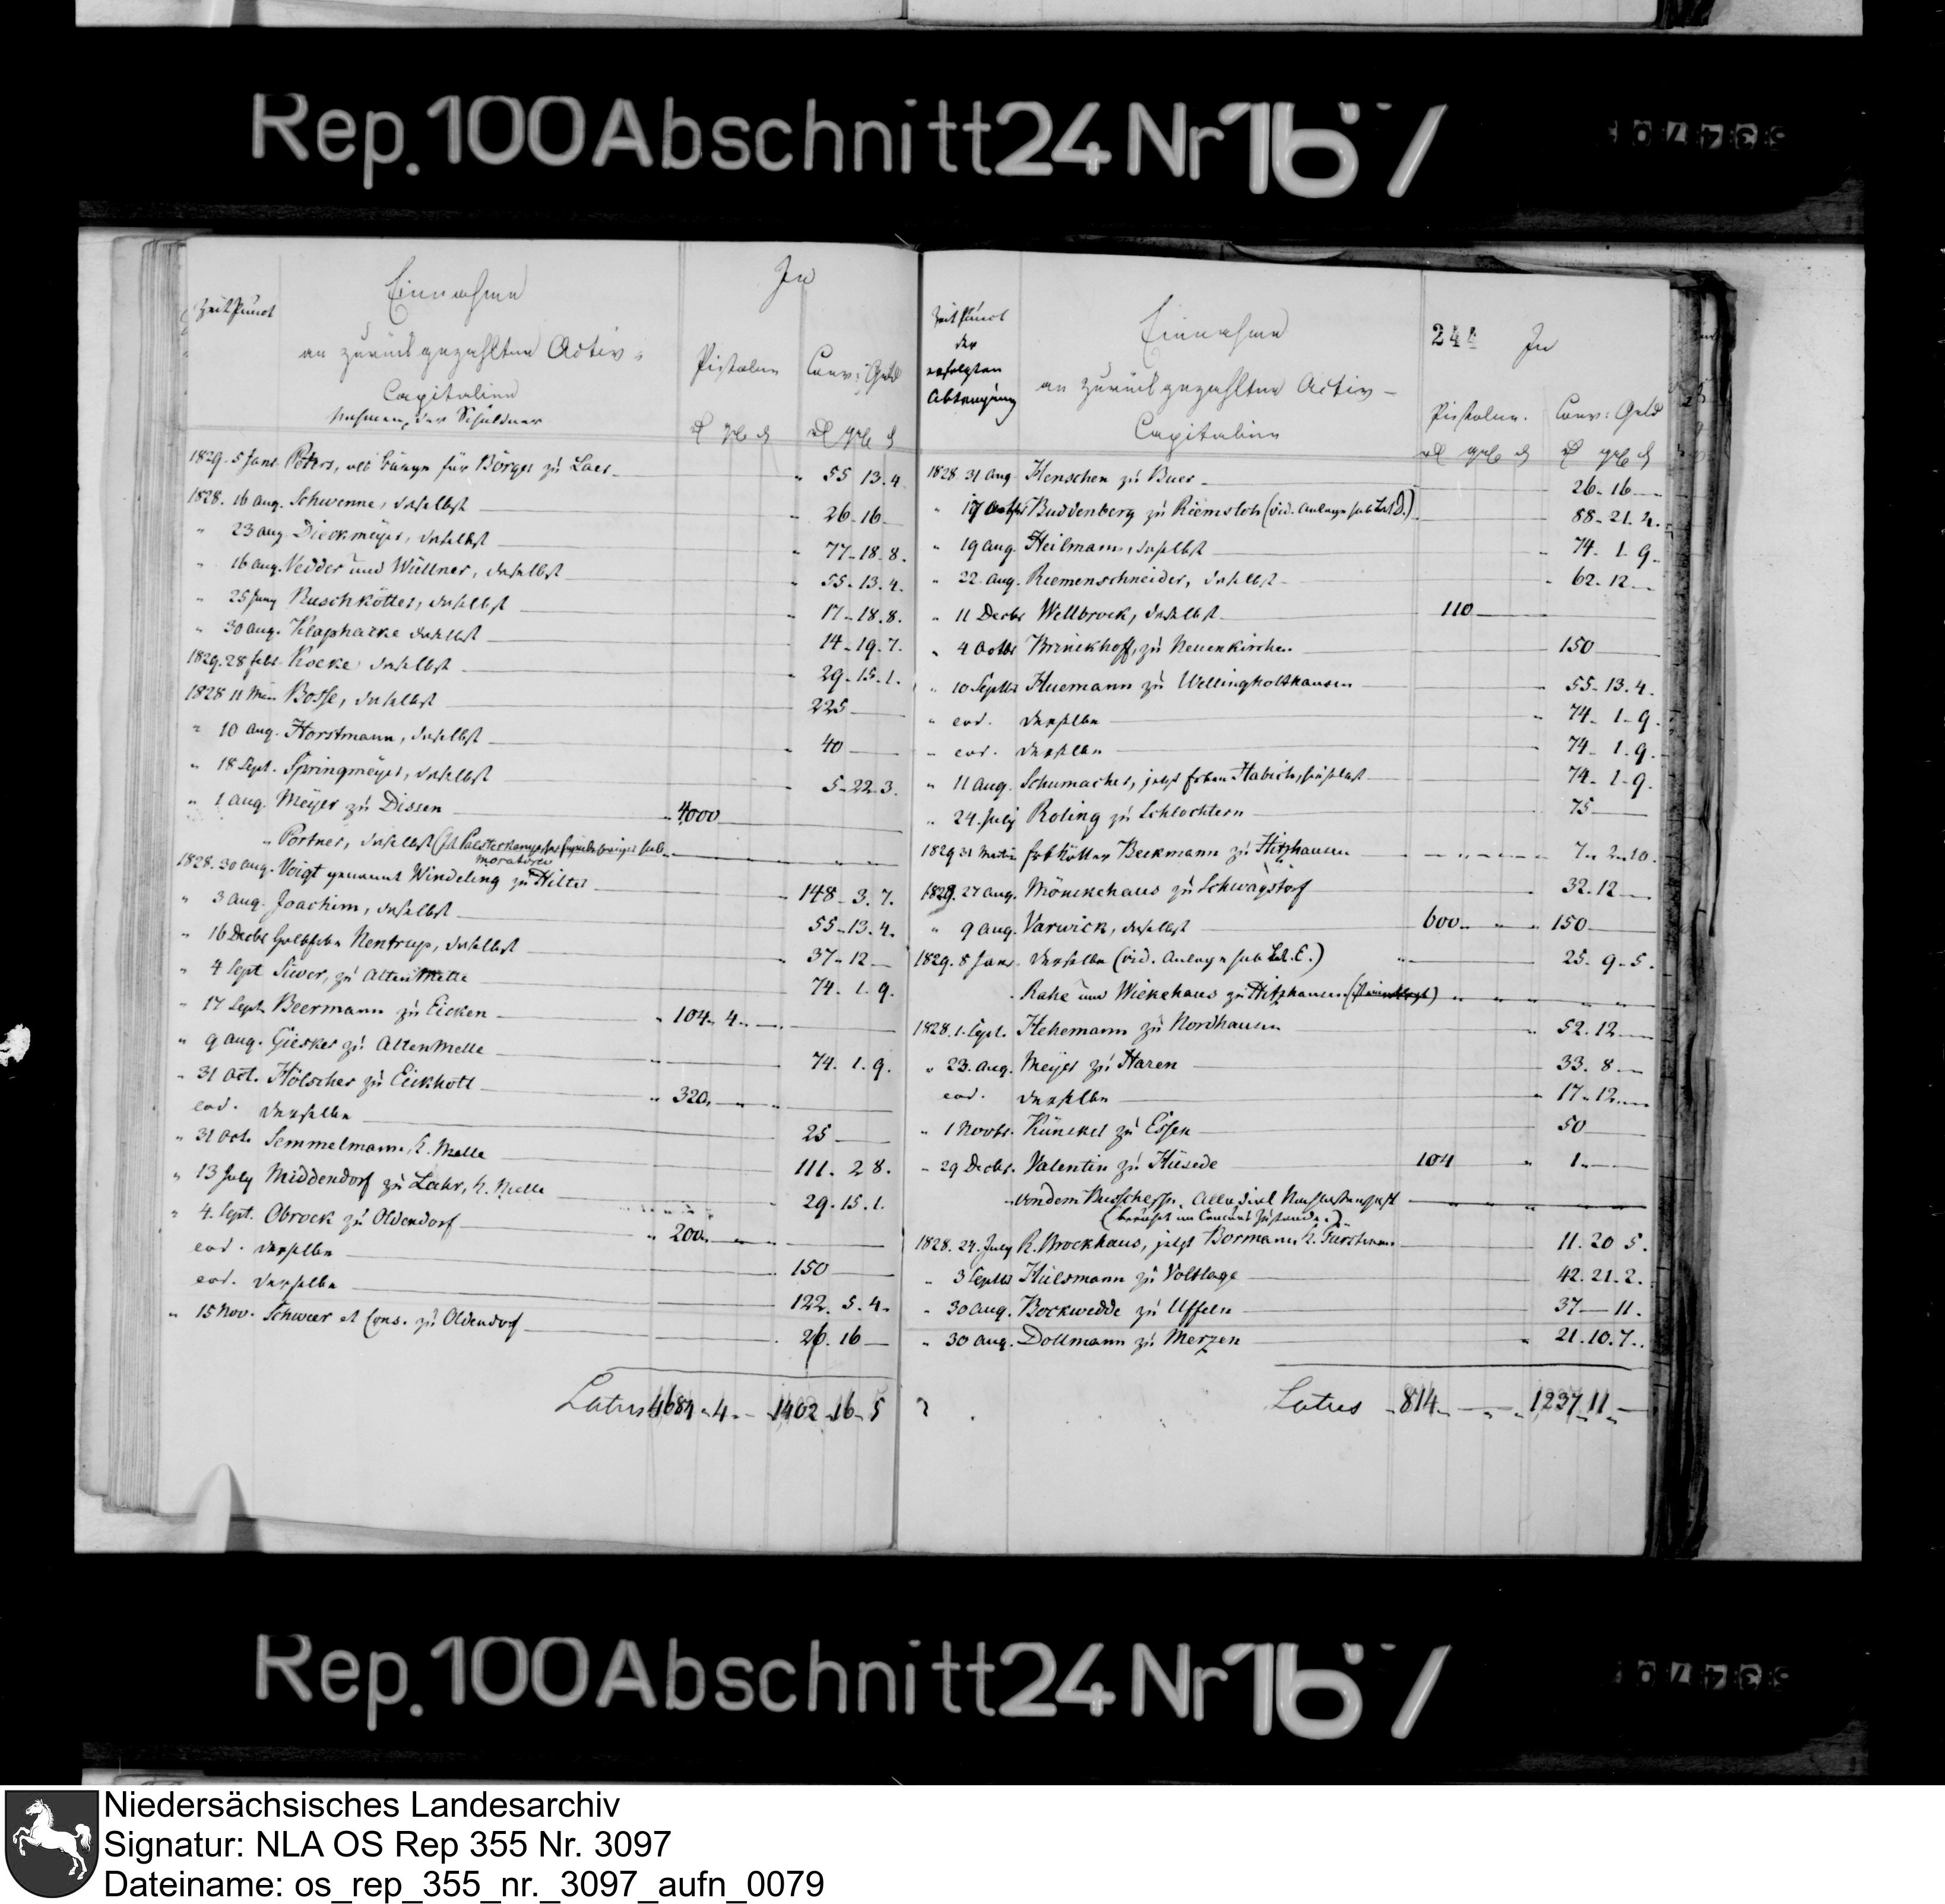 Rep. 100 Abschnitt 24 Nr 167
Zeitpunct
Einnahme
an zurückgezahlten Activ-
Capitalien
Nahmen der Schuldner
In
Pistolen
Conv: Geld
1829. 5 Janr. Peters, als Bürge für Börger zu Laer 55 13. 4
1828. 16 Aug. Schwenne, daselbst 26 16
" 23 Aug. Dieckmeyer, daselbst 77. 18. 8.
" 16 Aug. Vedder und Wüllner, daselbst 55. 13. 4.
" 25 Juny Ruschkötter, daselbst 17. 18. 8.
" 30 Aug. Klapheicke daselbst 14. 19. 7.
1829. 28 Febr. Kocke daselbst 29. 15. 1.
1828 11 Bosse, daselbst 225
" 10 Aug. Horstmann, daselbst 40
" 18 Sept. Springmeyer, daselbst 5. 22. 3.
" 1 Aug. Meyer zu Dissen 4000
" Portner, daselbst
1828. 30 Aug. Voigt genannt Windeling zu Hilter 148. 3. 7.
" 3 Aug. Joachim, daselbst 55. 13. 4.
" 16 Decbr Nentrup, daselbst 37. 12
" 4 Sept Siever, zu Alten Melle 74. 1. 9.
" 17 Sept. Beermann zu Eicken 104. 4.
" 9 Aug. Giesker zu Alten Melle 74. 1. 9.
" 31 Oct. Hölscher zu Eickholt 320.
eod. derselbe 25
" 31 Oct. Semmelmann, K. Melle 111. 2 8.
" 13 July Middendorf zu Lahr, K. Melle 29. 15. 1.
" 4. Sept. Obrock zu Oldendorf 200.
eod. derselbe 150
eod. derselbe 122. 5. 4.
" 15 Nov. Schweer et Cons. zu Oldendorf 26. 16
Latus 4684. 4. 1402. 16. 5
244
Zeitpunct
der
erfolgten
Abtragung
Einnahme
an zurückgezahlten Activ-
Capitalien
In
Pistolen.
Conv: Geld
1828. 31 Aug Henschen zu Buer 26. 16
" 17 Buddenberg zu Riemsloh (vid. Anlage sub Lit D.) 88. 21. 4.
" 19 Aug. Heilmann, daselbst 74. 1. 9.
" 22. Aug. Riemenschneider, daselbst 62. 12
" 11 Decbr Wellbrock, daselbst 110
" 4 Octbr Brinckhoff, zu Neuenkirchen 150
" 10 Septbr Huemann zu Wellingholthausen 55. 13. 4.
" eod. derselbe 74. 1. 9.
" eod. derselbe 74. 1. 9.
" 11 Aug. Schumacher, jetzt Erben Habich, daselbst 74. 1. 9.
" 24. July Roling zu Schlochtern 75
1829 31 Martii Erbkötter Beckmann zu Hitzhausen 7. 2. 10.
1828. 27 Aug. Mönckehaus zu Schwagstorf 32. 12
" 9 Aug. Varwick, daselbst 600. 150
1829. 8 Janr. derselbe (vid. Anlage sub Lit. E.) 25. 9. 5.
Rahe und Wiekehaus zu Hitzhausen
1828. 1. Sept. Hehemann zu Nordhausen 52. 12
" 23. Aug. Meyer zu Haren 33. 8
eod. derselbe 17. 12
" 1 Novbr. Künckel zu Essen 50
" 29 Decbr. Valentin zu Hüsede 104 1.
von dem Bussche Allodial Nachlassenschaft
(beruhet im Concurs Zustande.)
1828. 24. July R. Brockhaus, jetzt Bormann K. Fürstenau 11. 20 5.
" 3 Septbr Hülsmann zu Voltlage 42. 21. 2.
" 30 Aug. Bockwedde zu Uffeln 37 11.
" 30 Aug. Dollmann zu Merzen 21. 10. 7.
Latus 814. 1237. 11
Rep. 100 Abschnitt 24 Nr 167
Niedersächsisches Landesarchiv
Signatur: NLA OS Rep 355 Nr. 3097
Dateiname: os_rep_355_nr._3097_aufn_0079